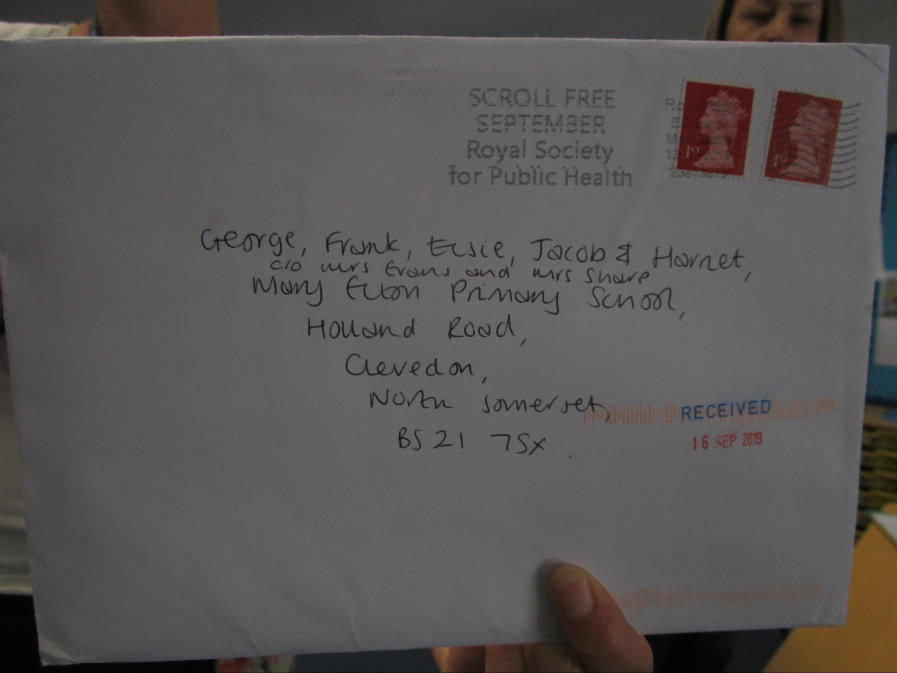 SCROLL FREE
SEPTEMBER
Royal Society
for Public Health
1st
1st
George, Frank, Elsie, Jacob & Harriet,
c/o Mrs Evans and Mrs Snare
Mary Elton Primary School,
Holland Road,
Clevedon,
North Somerset,
BS21 7SX
RECEIVED
16 SEP 2019